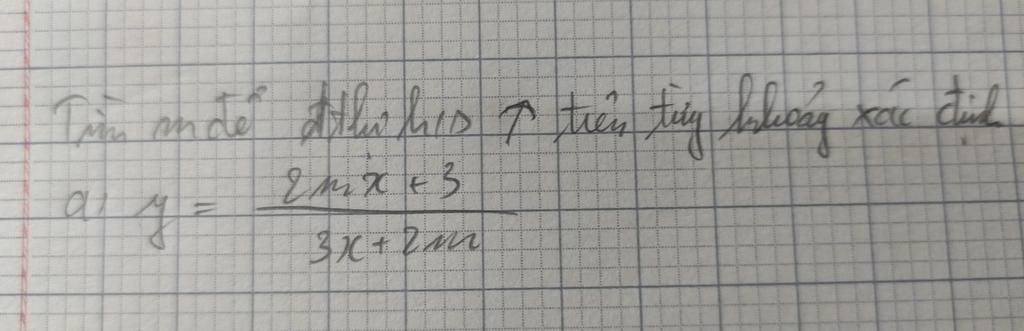 Tìm m để đthị h/s ↑ trên từng khoảng xác định
a, y = (2mx + 3) / (3x + 2m)